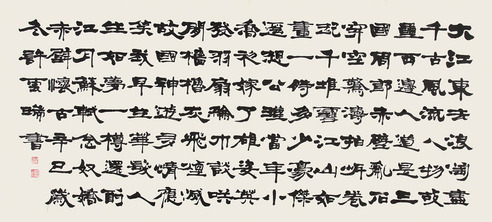 大江東去浪淘盡
千古風流人物故
壘西邊人道是三
國周郎赤壁亂石
穿空驚濤拍岸卷
起千堆雪江山如
畫一時多少豪傑
遥想公瑾當年小
喬初嫁了雄姿英
發羽扇綸巾談笑
間檣櫓灰飛煙滅
故國神遊多情應
笑我早生華髮人
生如夢一樽還酹
江月蘇軾念奴嬌
赤壁懷古辛巳歲
冬許雲書